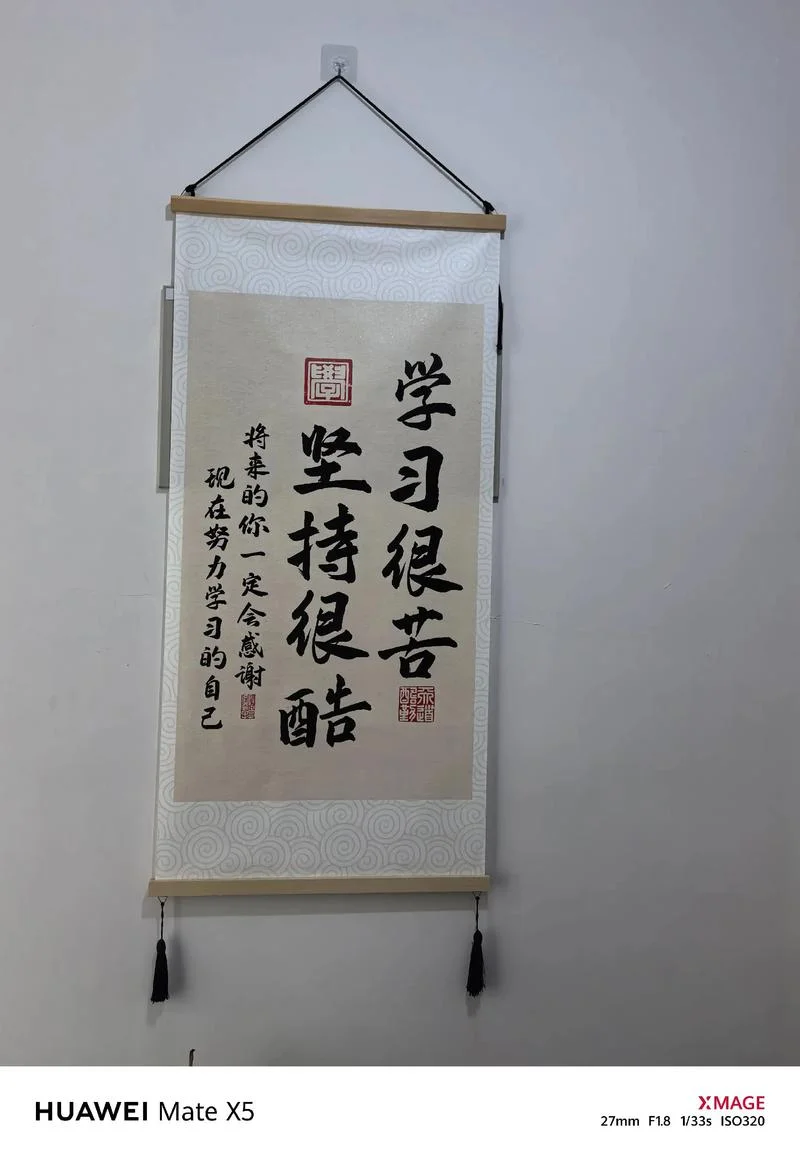 学习很苦
坚持很酷
將来的你一定会感谢
现在努力学习的自己
學
天道酬勤
HUAWEI Mate X5
XMAGE
27mm F1.8 1/33s ISO320